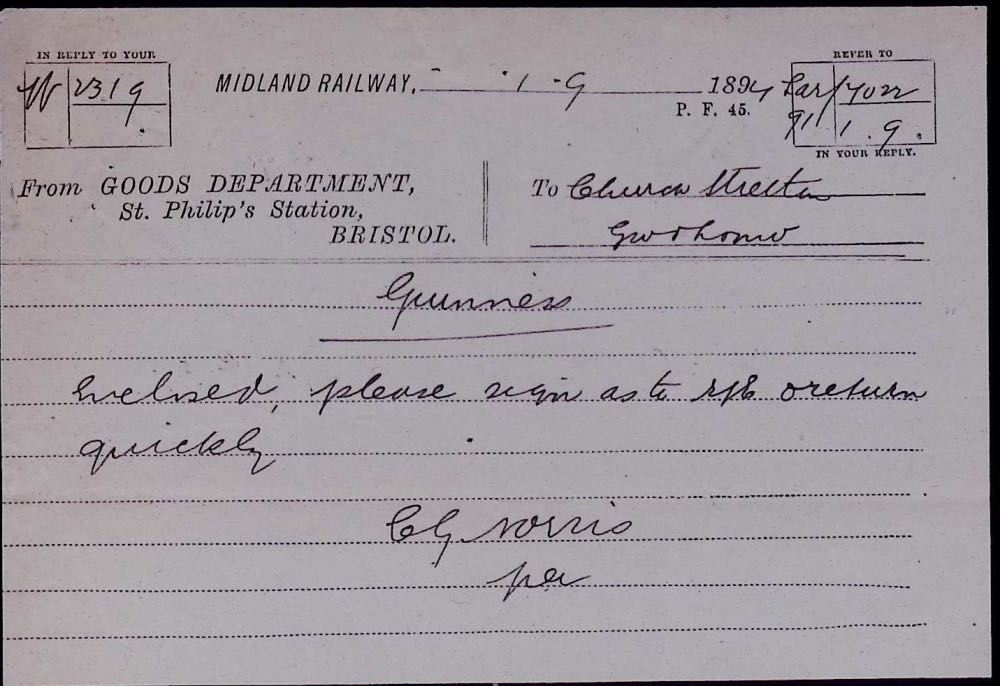 IN REPLY TO YOUR
W 2319
MIDLAND RAILWAY, 1-9 1894
P. F. 45.
REFER TO
7022
91/ 1.9.
IN YOUR REPLY.
From GOODS DEPARTMENT,
St. Philip's Station,
BRISTOL.
To Church Stretton
Gunness
Enclosed, please sign as to & return
quickly
CG Norris
per